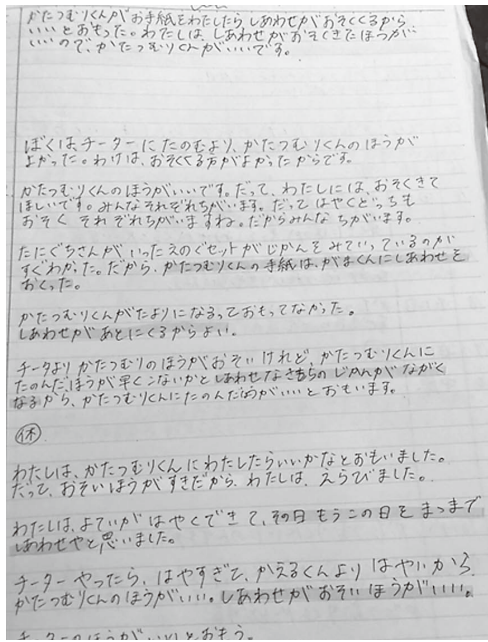 かたつむりくんがお手紙をわたしたらしあわせがおそくくるから
いいとおもった。わたしは、しあわせがおそくきたほうが、
いいので、かたつむりくんがいいです。
ぼくは、チーターにたのむより、かたつむりくんのほうが
よかった。わけは、おそくくる方がよかったからです。
かたつむりくんのほうがいいです。だって、わたしには、おそくきて
ほしいです。みんなそれぞれちがいます。だってはやくどっちも
おそく それぞれちがいますね。だからみんなちがいます。
たにぐちさんがいったえのぐセットがじかんをみていっているのが
すぐわかった。だから、かたつむりくんの手紙は、がまくんにしあわせを
おくった。
かたつむりくんがたよりになるっておもってなかった。
しあわせがあとにくるからよい。
チータよりかたつむりのほうがおそいけれど、かたつむりくんに
たのんだほうが早くこないかとしあわせなきもちのじかんがながく
なるから、かたつむりくんにたのんだ方がいいとおもいます。
休
わたしは、かたつむりくんにわたしたらいいかなとおもいました。
だって、おそいほうがすきだから、わたしは、えらびました。
わたしは、よていがはやくできて、その日もうこの日をまつまで
しあわせやと思いました。
チーターやったら、はやすぎて、かえるくんよりはやいから
かたつむりくんのほうがいい。しあわせがおそいほうがいい。
チーターのほうがいいとおもう。